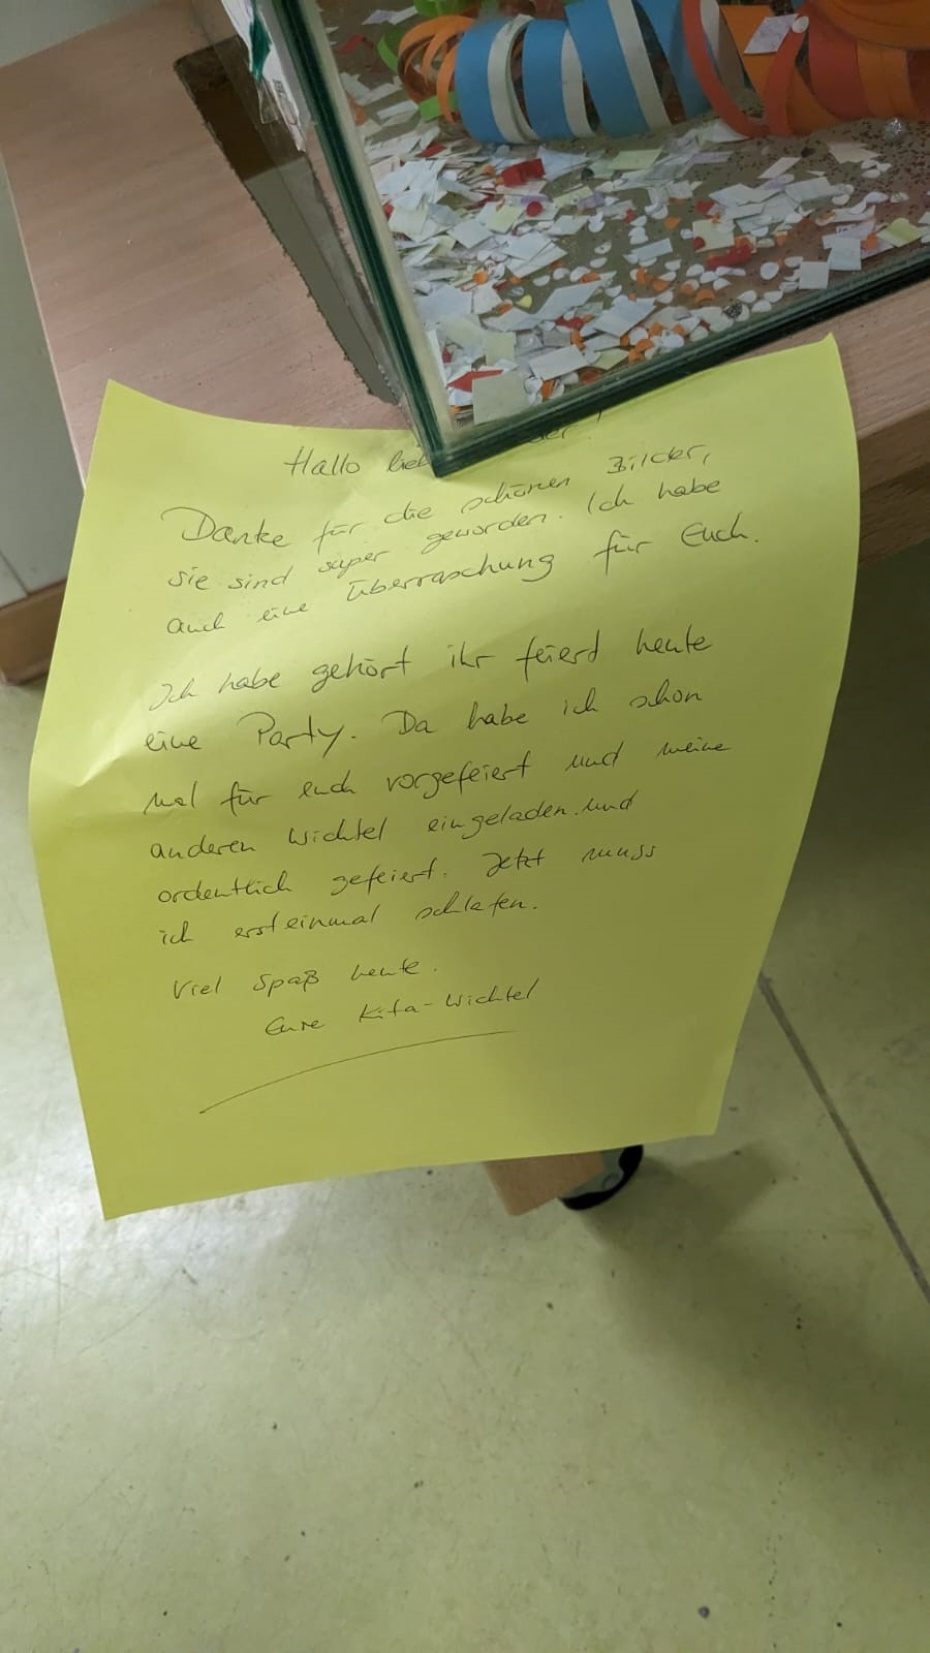 Hallo
Danke für die schönen Bilder,
sie sind super geworden. Ich habe
auch eine Überraschung für Euch.
Ich habe gehört ihr feierd heute
eine Party. Da habe ich schon
mal für euch vorgefeiert und meine
anderen Wichtel eingeladen. und
ordentlich gefeiert. Jetzt muss
ich ersteinmal schlafen.
Viel Spaß heute.
Eure Kita-Wichtel